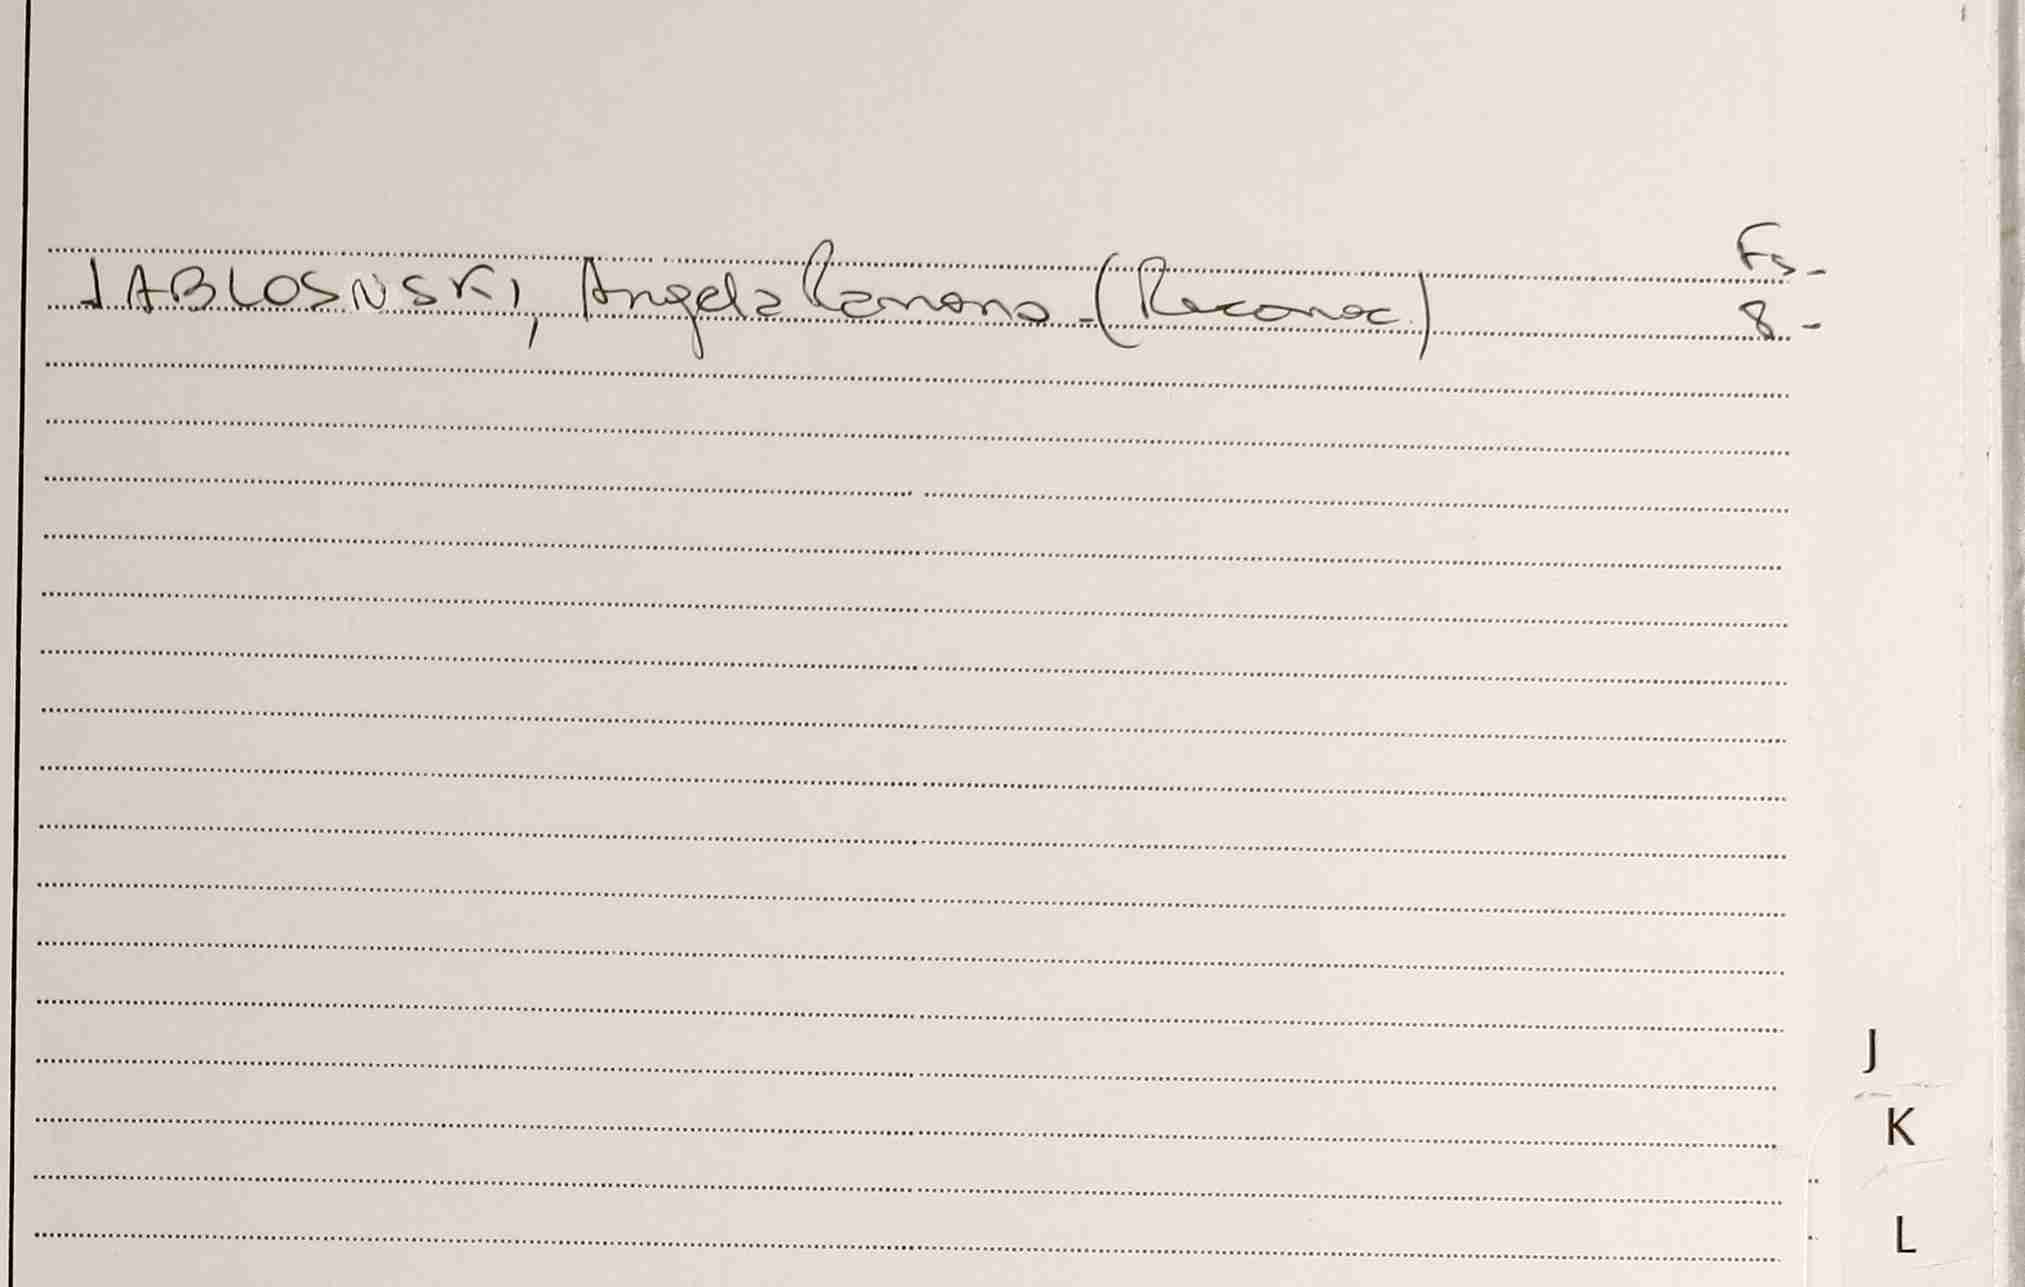 Fs-
JABLOSNSKI, Angela Ramona-(Reconoc.) 8-
J
K
L